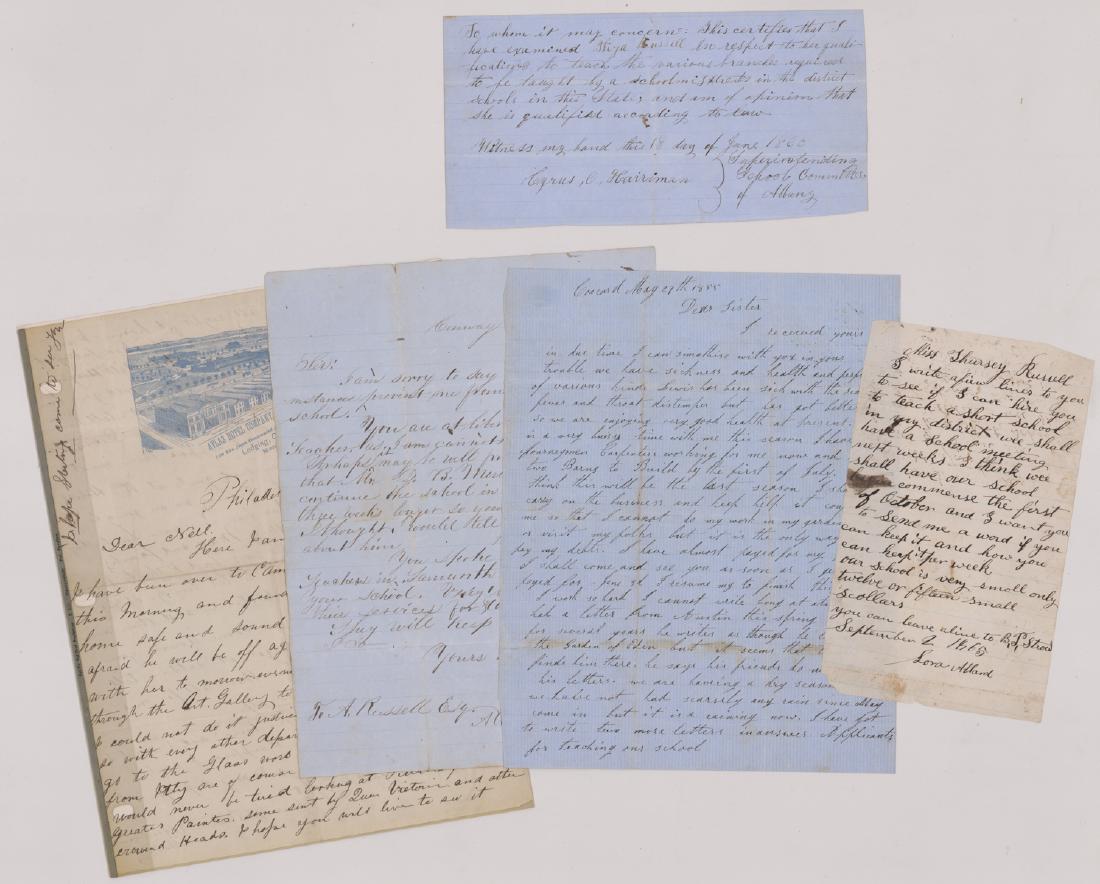 To whom it may concern: This certifies that I
have examined Russell in respect to her quali-
fications to teach the various branches required
to be taught by a schoolmistress in the district
schools in this State, and am of opinion that
she is qualified according to law
Witness my hand this 18 day of June 1860
Cyrus, C, Harriman
Superintending
School Committee
of Albany
I hope Sterling come to see you
ATLAS HOTEL COMPANY
Lodging,
Philadel
Dear Nell.
Here I am
I have been over to Cam
this Morning and found
home safe and sound
afraid he will be off ag
with her to morrow
through the Art. Gallery to
I could not do it justice
so with every other depar
go to the Glass work
from are of course
would never be tired looking at
greates Painter. some sent by Quen Victoria and other
crowned Heads. I hope you will live to see it
Conway
Sir:
I am sorry to say
mstances prevent me from
school.
You are at liber
Teacher, as I am
Perhaps it may be well
that Mr. B.
continue the school in
three weeks longer so
I thought I would tell
about him.
You spoke
Teacher in
your School.
their services for
They will keep
Yours
To A. Russell Esq.
Concord May 27th 1855
Dear Sister
I received yours
in due time I can simothise with you in your
trouble we have sickness and health and perp
of various kinds Lewis has been sick with the
fever and throat distemper but has got better
so we are enjoying very good health at present.
in a very buisy time with me this season I have
Journeymen Carpenters working for me now and
two Barns to Build by the first of July.
think this will be the last season I sha
carry on the business and keep help it
me so that I cannot do my work in my garden
or visit my folks but it is the only way
pay my debts. I have almost payed for my
I shall come and see you as soon as I
payed for. June 3d I resume my to finish this
I work so hard I cannot write long at
had a letter from Austin this spring
for several years he writes as though he
the Garden of Eden but it seems that
finds him there. he says his friends do
his letters. we are having a dry season
we have not had scarsily any rain since May
come in but it is a raining now. I have got
to write two more letters in answer Applicants
for teaching our school
Miss Thursey Russell
I write a few lines to you
to see if I can hire you
to teach a short school
in my district wee shall
have a school meeting
next weeks I think wee
shall have our school
commense the first
of October and I want you
to send me a word if you
can keep it and how you
can keep it per week
our school is very small only
twelve or fifteen small
scollars
you can leave aline to
September 2 1865
Lora Allard